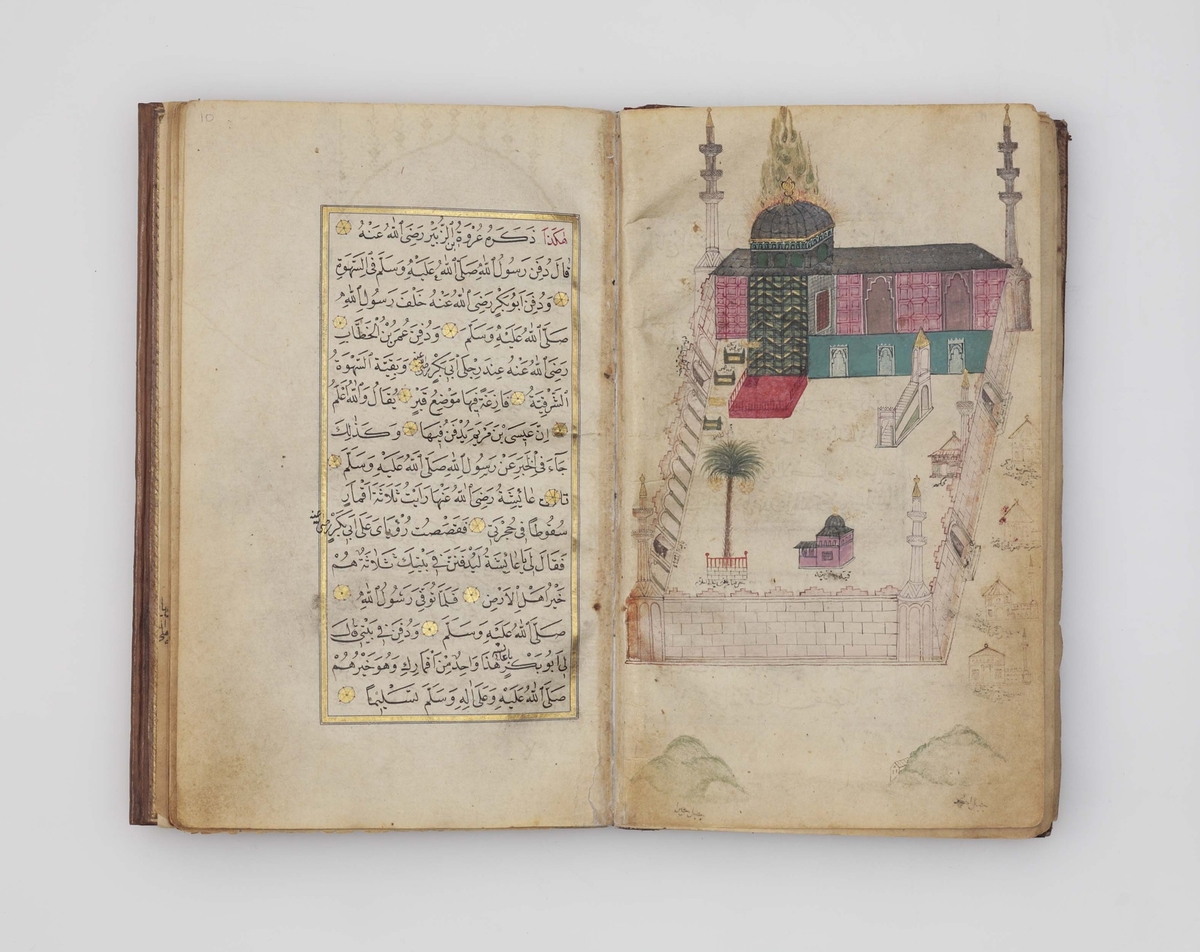 هٰكَذَا ذَكَرَهُ عُرْوَةُ بْنُ الزُّبَيْرِ رَضِيَ اللّٰهُ عَنْهُ
قَالَ دُفِنَ رَسُولُ اللّٰهِ صَلَّى اللّٰهُ عَلَيْهِ وَسَلَّمَ فِي السَّهْوَةِ
وَدُفِنَ اَبُو بَكْرٍ رَضِيَ اللّٰهُ عَنْهُ خَلْفَ رَسُولِ اللّٰهِ
صَلَّى اللّٰهُ عَلَيْهِ وَسَلَّمَ وَدُفِنَ عُمَرُ بْنُ الْخَطَّابِ
رَضِيَ اللّٰهُ عَنْهُ عِنْدَ رِجْلَيْ اَبِي بَكْرٍ وَبَقِيَتِ السَّهْوَةُ
الشَّرْقِيَّةُ فَارِغَةً فِيهَا مَوْضِعُ قَبْرٍ يُقَالُ وَاللّٰهُ اَعْلَمُ
اِنَّ عِيسَى بْنَ مَرْيَمَ يُدْفَنُ فِيهَا وَكَذٰلِكَ
جَاءَ فِي الْخَبَرِ عَنْ رَسُولِ اللّٰهِ صَلَّى اللّٰهُ عَلَيْهِ وَسَلَّمَ
قَالَتْ عَائِشَةُ رَضِيَ اللّٰهُ عَنْهَا رَاَيْتُ ثَلَاثَةَ اَقْمَارٍ
سُقُوطًا فِي حُجْرَتِي فَقَصَصْتُ رُؤْيَايَ عَلَى اَبِي بَكْرٍ
فَقَالَ لِي يَا عَائِشَةُ لَيُدْفَنَنَّ فِي بَيْتِكِ ثَلَاثَةٌ هُمْ
خَيْرُ اَهْلِ الْاَرْضِ فَلَمَّا تُوُفِّيَ رَسُولُ اللّٰهِ
صَلَّى اللّٰهُ عَلَيْهِ وَسَلَّمَ وَدُفِنَ فِي بَيْتِي قَالَ
لِي اَبُو بَكْرٍ هٰذَا وَاحِدٌ مِنْ اَقْمَارِكِ وَهُوَ خَيْرُهُمْ
صَلَّى اللّٰهُ عَلَيْهِ وَعَلَى اٰلِهِ وَسَلَّمَ تَسْلِيمًا